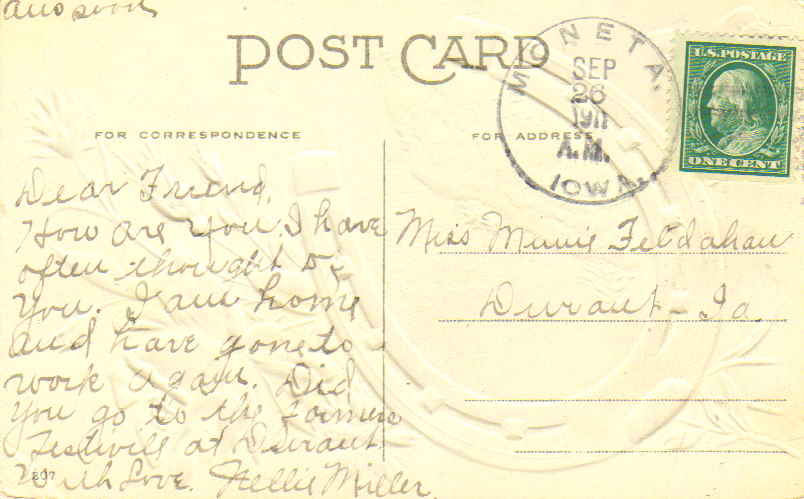 Ans soon
POST CARD
MONETA.
SEP
26
1911
A.M.
IOWA.
U.S. POSTAGE
ONE CENT
FOR CORRESPONDENCE
FOR ADDRESS
Dear Friend,
How are you I have
often thought of
you. I am home
and have gone to
work again. Did
you go to the Farmers
Festivell at Durant
With Love. Nellie Miller.
307
Miss Minnie
Durant - Ia.